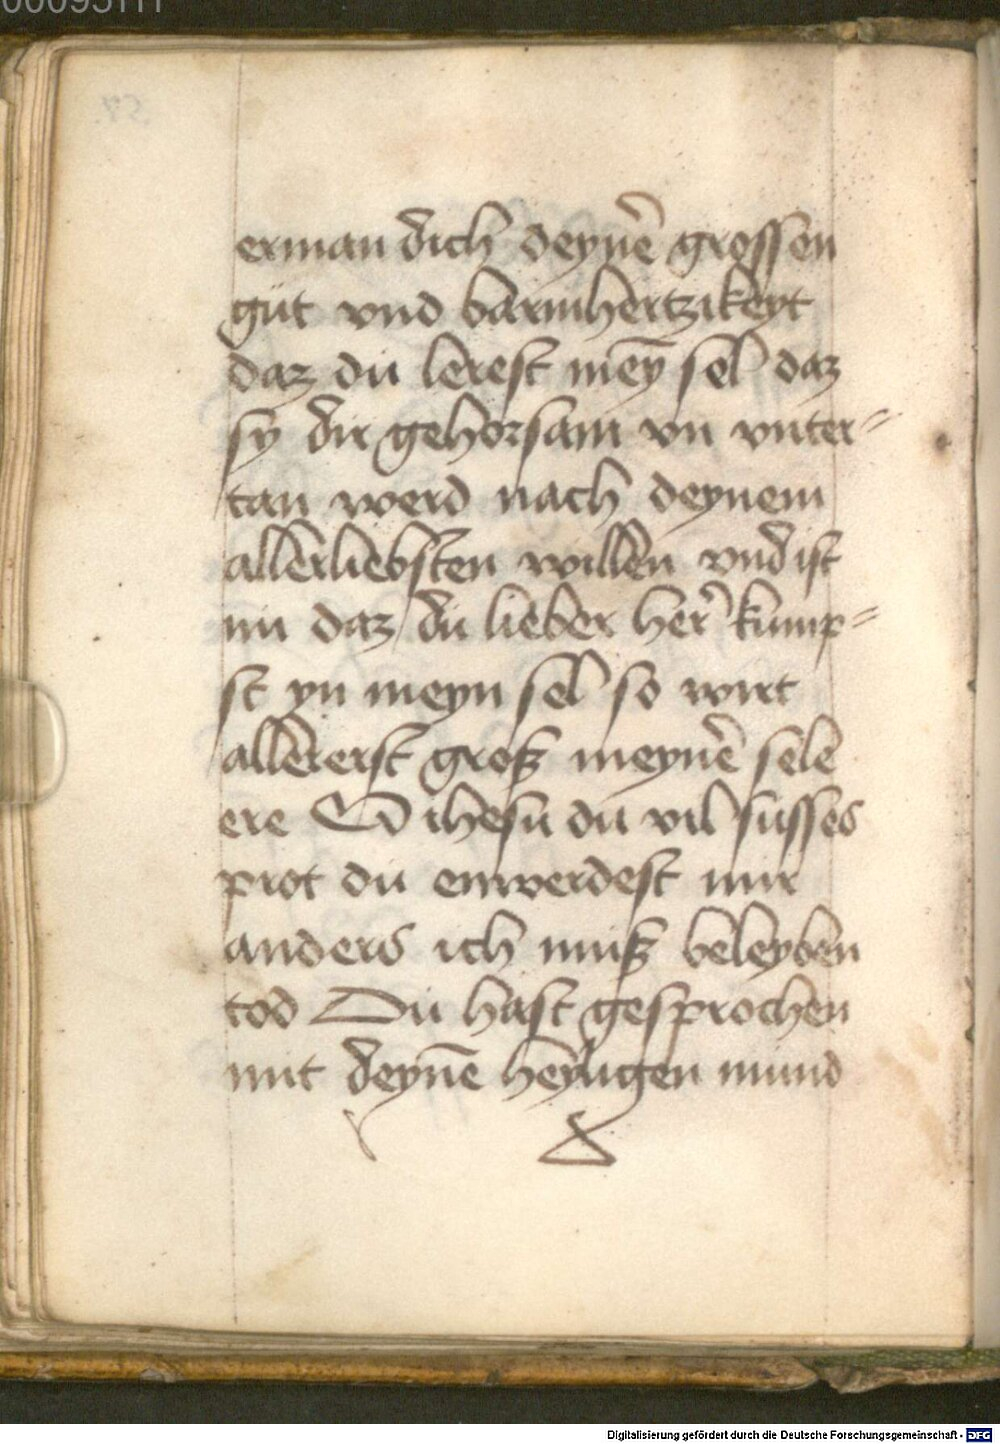 erman dich deynẽ grossen
güt vnd barmhertzikeyt
daz du lerest mey̅ sel daz
sy dir gehorsam vn vnter=
tan werd nach deynem
allerliebsten willen vnd ist
nu daz du lieber her kump=
st yn meyn sel so wirt
allererst groß meynẽ sele
ere O ihesu du vil susses
prot du enwerdest mir
anders ich muß beleyben
tod Du hast gesprochen
mit deyne̅ heyligen mund
Digitalisierung gefördert durch die Deutsche Forschungsgemeinschaft - DFG